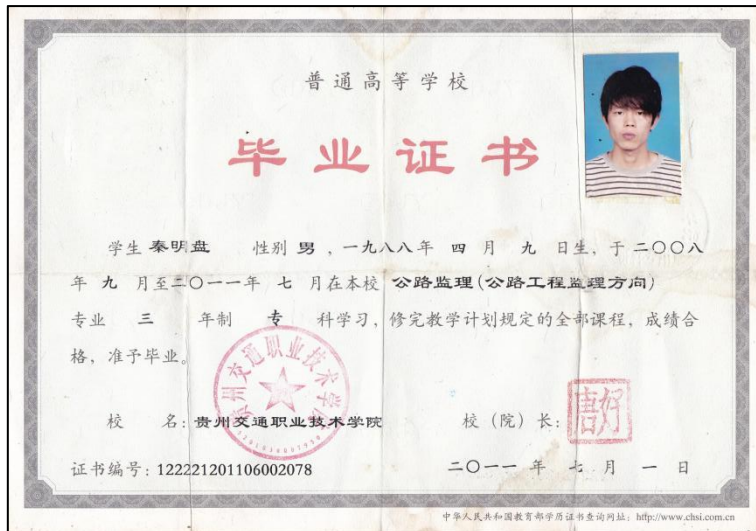 普通高等学校
毕业证书
学生 秦明盘 性别 男，一九八八年 四 月 九 日生，于二〇〇八
年 九 月至二〇一一年 七 月在本校 公路监理(公路工程监理方向)
专业 三 年制 专 科学习，修完教学计划规定的全部课程，成绩合
格，准予毕业。
贵州交通职业技术学院
校 名：贵州交通职业技术学院 校（院）长：
证书编号：122221201106002078 二〇一一 年 七 月 一 日
中华人民共和国教育部学历证书查询网址：http://www.chsi.com.cn